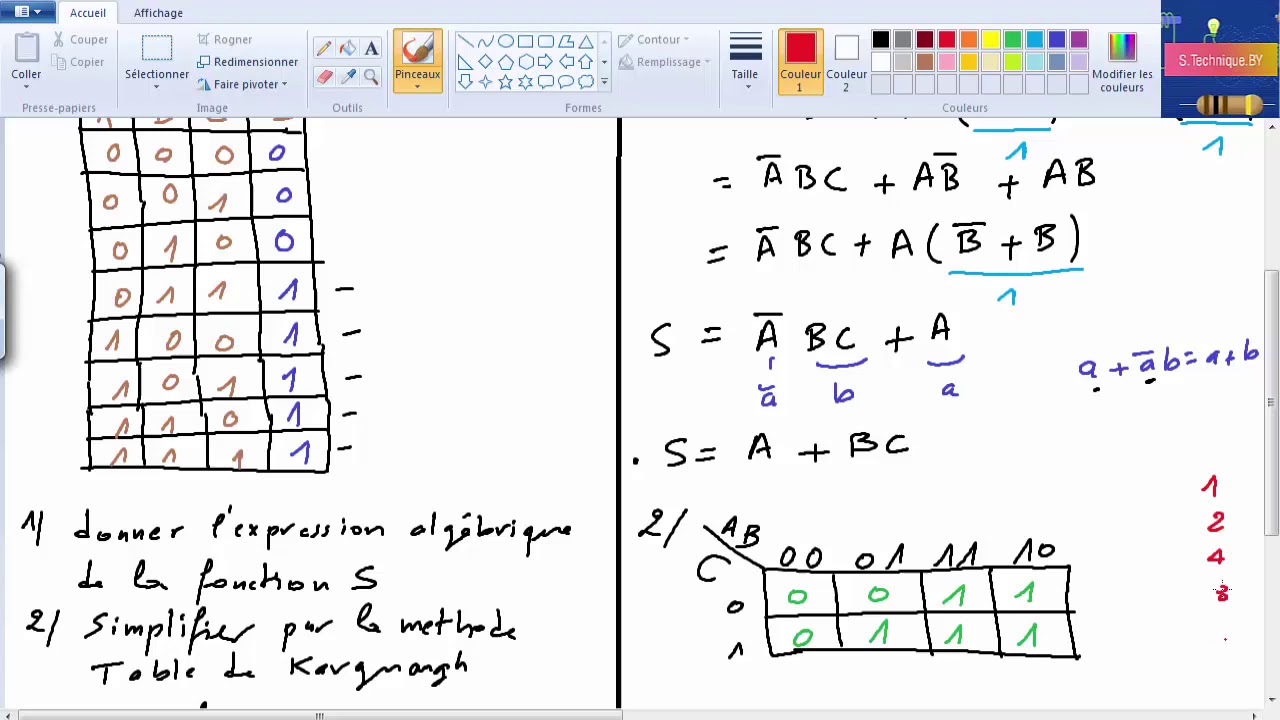 Accueil Affichage
Coller
Couper
Copier
Presse-papiers
Sélectionner
Rogner
Redimensionner
Faire pivoter
Image
Outils
Pinceaux
Formes
Contour
Remplissage
Taille
Couleur 1
Couleur 2
Couleurs
Modifier les couleurs
S.Technique.BY
0 0 0 0
0 0 1 0
0 1 0 0
0 1 1 1 –
1 0 0 1 –
1 0 1 1 –
1 1 0 1 –
1 1 1 1 –
1/ donner l'expression algébrique
de la fonction S
2/ Simplifier par la methode
Table de Kargnangh
1 1
= A̅BC + AB̅ + AB
= A̅BC + A(B̅ + B)
1
S = A̅ BC + A
a̅ b a
a + a̅b = a+b
. S = A + BC
2/ AB
C 00 01 11 10
0 0 0 1 1
1 0 1 1 1
1
2
4
8